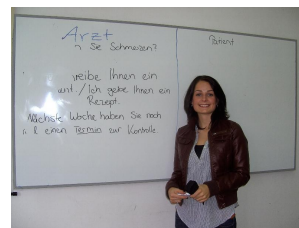 Arzt
Sie Schmerzen?
Ihnen ein
/ Ich gebe Ihnen ein
Rezept.
Nächste Woche haben Sie noch
einen Termin zur Kontrolle
Patient